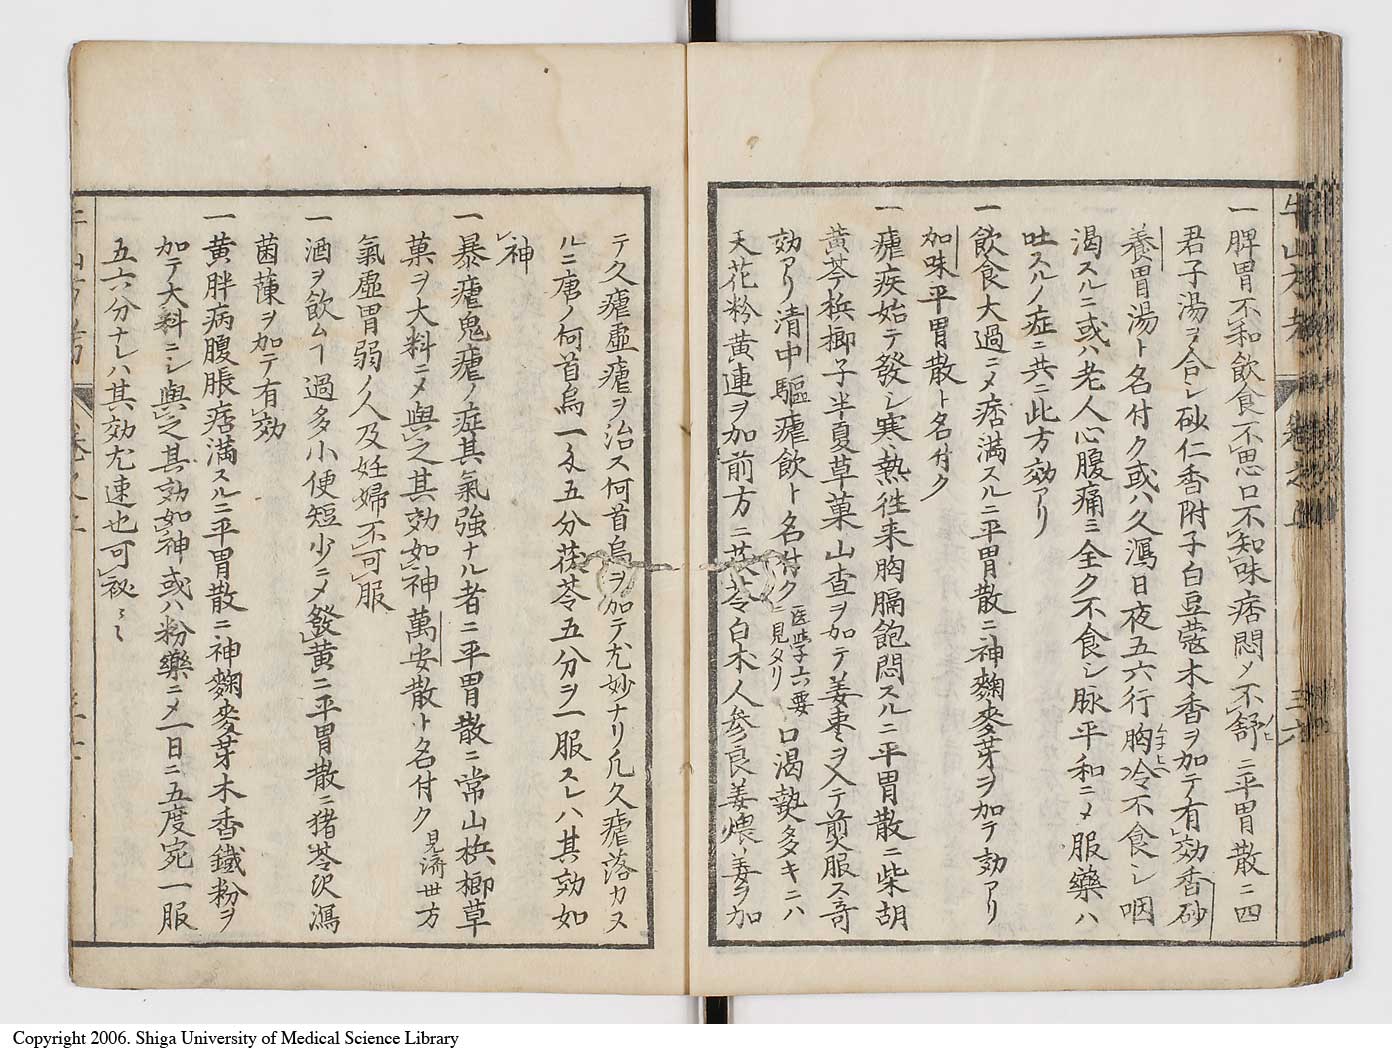 一脾胃不和飲食不思口不知味痞悶乄不舒ニ平胃散ニ四
君子湯ヲ合シ砂仁香附子白豆蔻木香ヲ加テ有効香砂
養胃湯ト名付ク或ハ久瀉日夜五六行胸冷不食シ咽
渇スルニ或ハ老人心腹痛ミ全ク不食シ脉平和ニ乄服藥ハ
吐スルノ症ニ共ニ此方効アリ
一飲食大過ニ乄痞満スルニ平胃散ニ神麴麥芽ヲ加テ効アリ
加味平胃散ト名付ク
一瘧疾始テ發シ寒熱徃来胸膈飽悶スルニ平胃散ニ柴胡
黄芩梹榔子半夏草菓山查ヲ加テ姜枣ヲ入テ煎服ス奇
効アリ清中驅瘧飲ト名付ク医学六要ニ見タリ口渇㔟多キニハ
天花粉黄連ヲ加前方ニ茯苓白朮人参良姜煨姜ヲ加
テ久瘧虚瘧ヲ治ス何首烏ヲ加テ尤妙ナリ凡久瘧落カヌ
ルニ唐ノ何首烏一匁五分茯苓五分ヲ一服スレハ其効如
神
一暴瘧鬼瘧ノ症其氣強ナル者ニ平胃散ニ常山梹榔草
菓ヲ大料ニ乄與之其効如神萬安散ト名付ク見済世方
氣虚胃弱ノ人及妊婦不可服
一酒ヲ飲ムヿ過多小便短少ニ乄發黄ニ平胃散ニ猪苓沢瀉
茵蔯ヲ加テ有効
一黄胖病腹脹痞満スルニ平胃散ニ神麴麥芽木香鐵粉ヲ
加テ大料ニシ與之其効如神或ハ粉藥ニ乄一日ニ五度宛一服
五六分ナレハ其効尤速也可秘〻〻
牛山方考 巻之上 三六
Copyright 2006. Shiga University of Medical Science Library